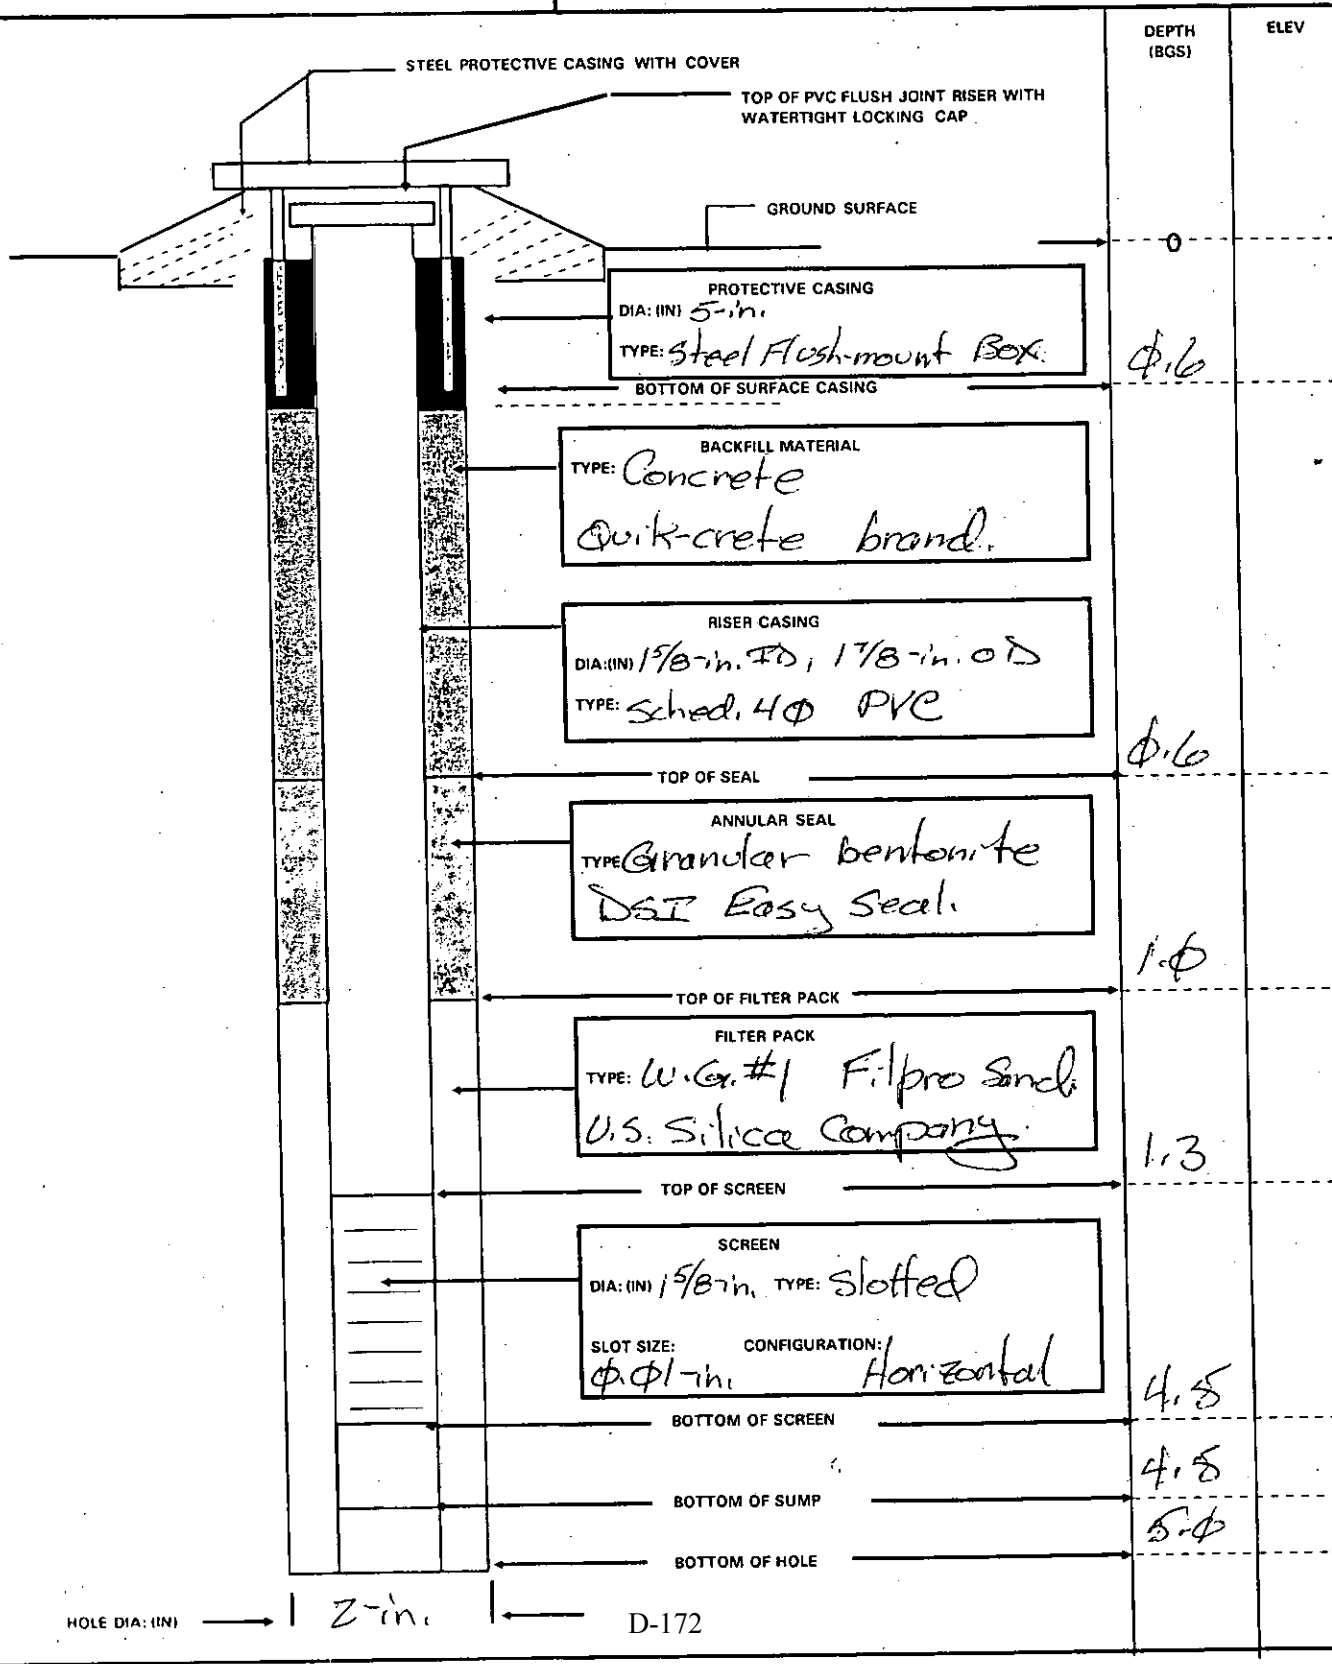 DEPTH
(BGS)
ELEV
STEEL PROTECTIVE CASING WITH COVER
TOP OF PVC FLUSH JOINT RISER WITH
WATERTIGHT LOCKING CAP
GROUND SURFACE
0
PROTECTIVE CASING
DIA: (IN) 5-in.
TYPE: Steel Flush-mount Box.
0.6
BOTTOM OF SURFACE CASING
BACKFILL MATERIAL
TYPE: Concrete
Quik-crete brand.
RISER CASING
DIA:(IN) 1 5/8-in. ID, 1 7/8-in. OD
TYPE: Sched. 40 PVC
0.6
TOP OF SEAL
ANNULAR SEAL
TYPE Granular bentonite
DSI Easy Seal.
1.0
TOP OF FILTER PACK
FILTER PACK
TYPE: W.G. #1 Filpro Sand.
U.S. Silica Company.
1.3
TOP OF SCREEN
SCREEN
DIA: (IN) 1 5/8-in. TYPE: Slotted
SLOT SIZE: CONFIGURATION:
0.01-in. Horizontal
BOTTOM OF SCREEN
BOTTOM OF SUMP
5.0
BOTTOM OF HOLE
HOLE DIA: (IN) 2-in.
D-172